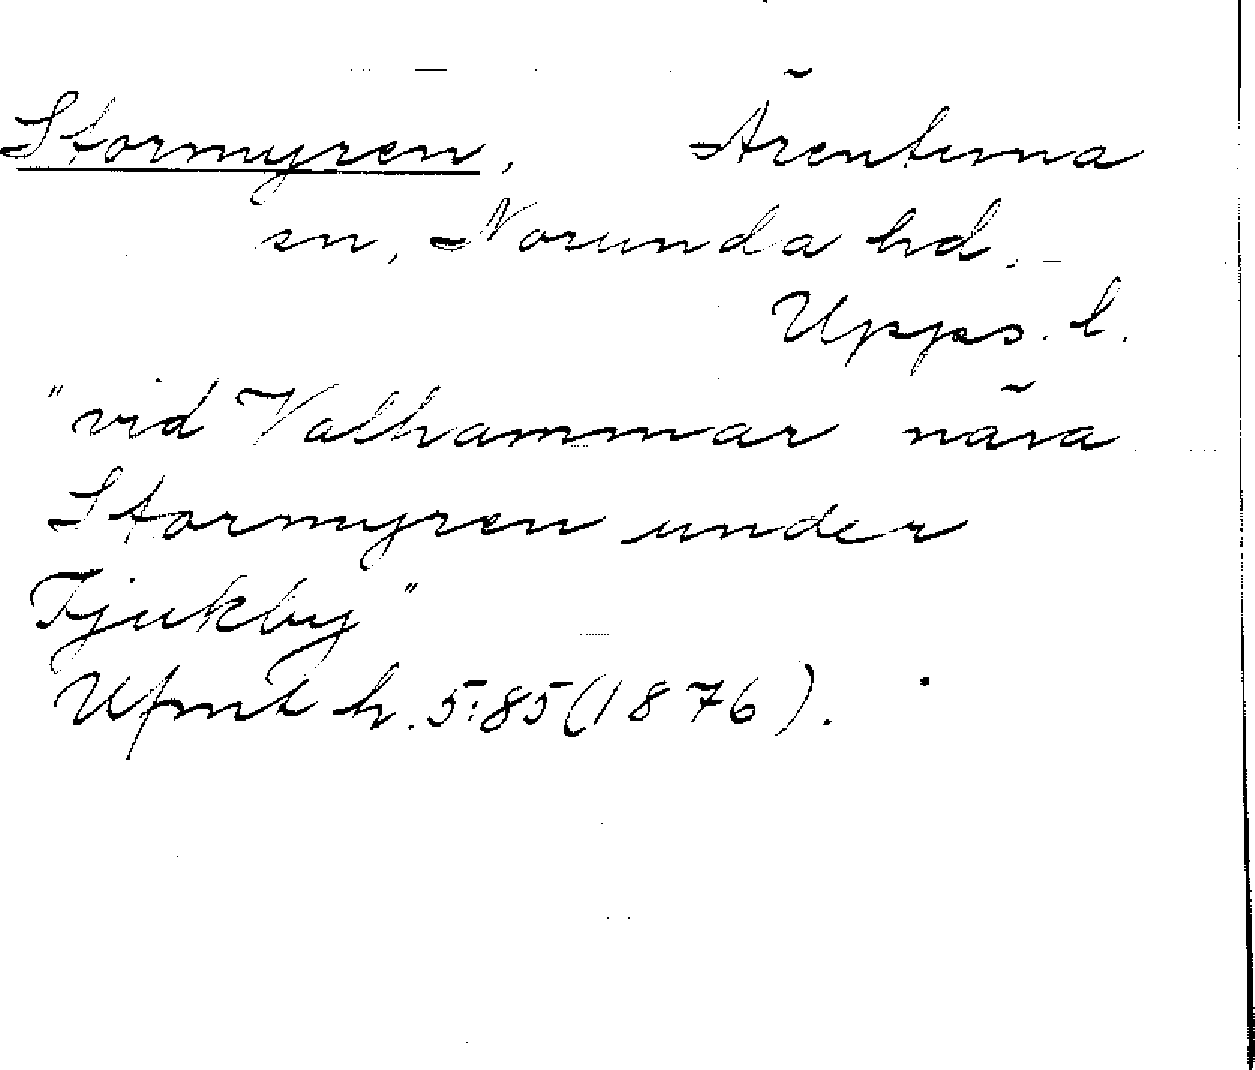 Stormyren, Ärentuna
sn, Norunda hd.
Upps. l.
"vid Valhammar nära
Stormyren under
Tjukby"
Ufmt h. 5:85 (1876).